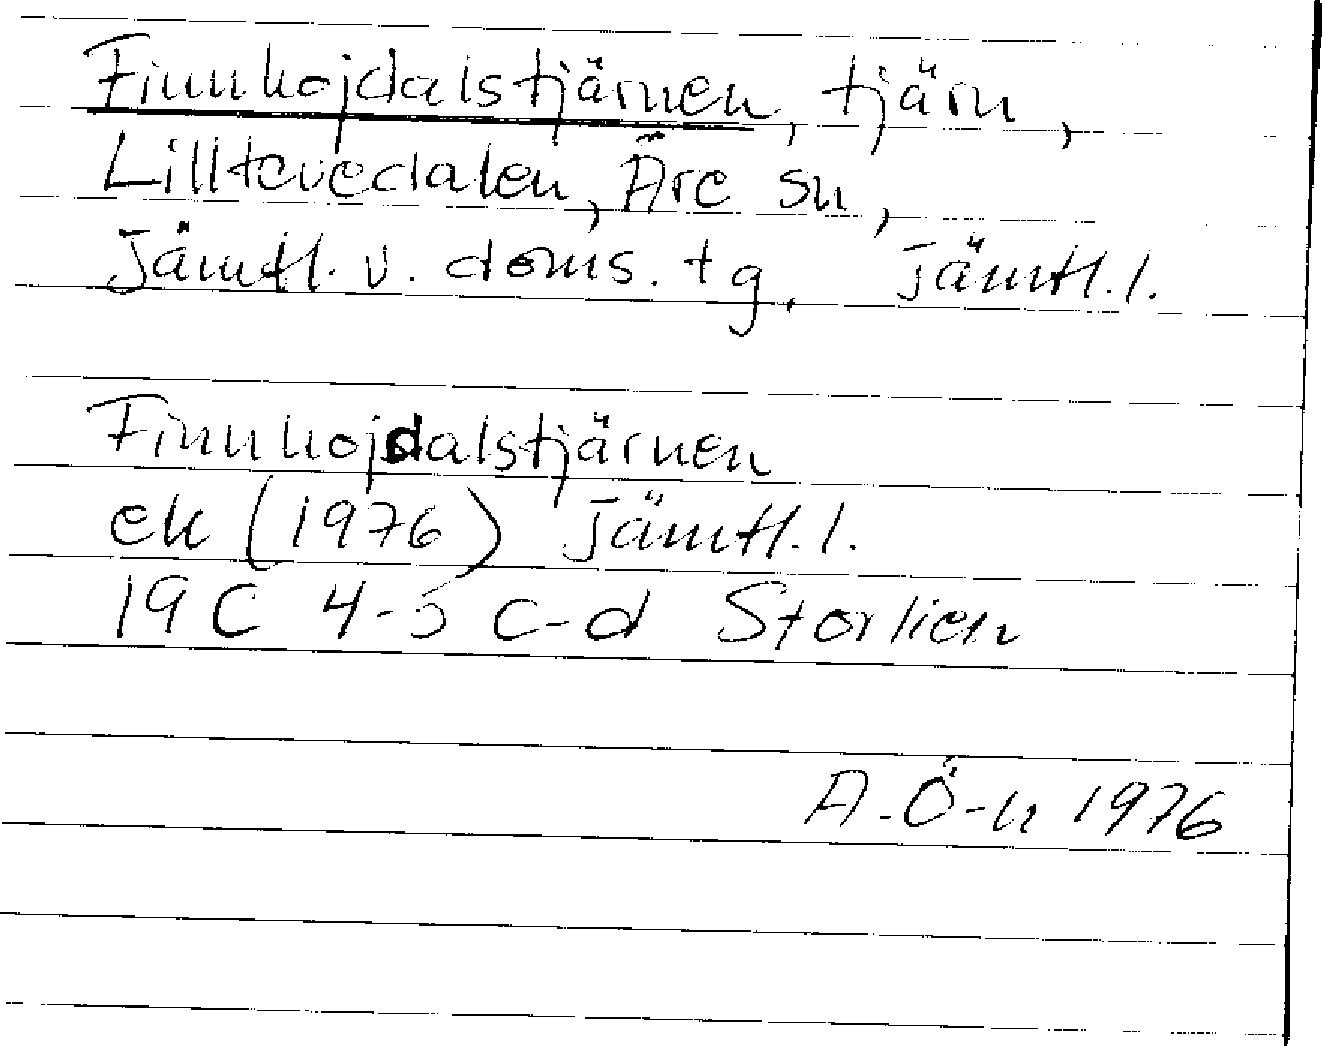 Finnhojdalstjärnen, tjärn,
Lilltevedalen, Åre sn,
Jämtl. v. doms. tg. Jämtl. l.
Finnhojdalstjärnen
ek (1976) Jämtl. l.
19C 4-5 c-d Storlien
A. Ö-n 1976